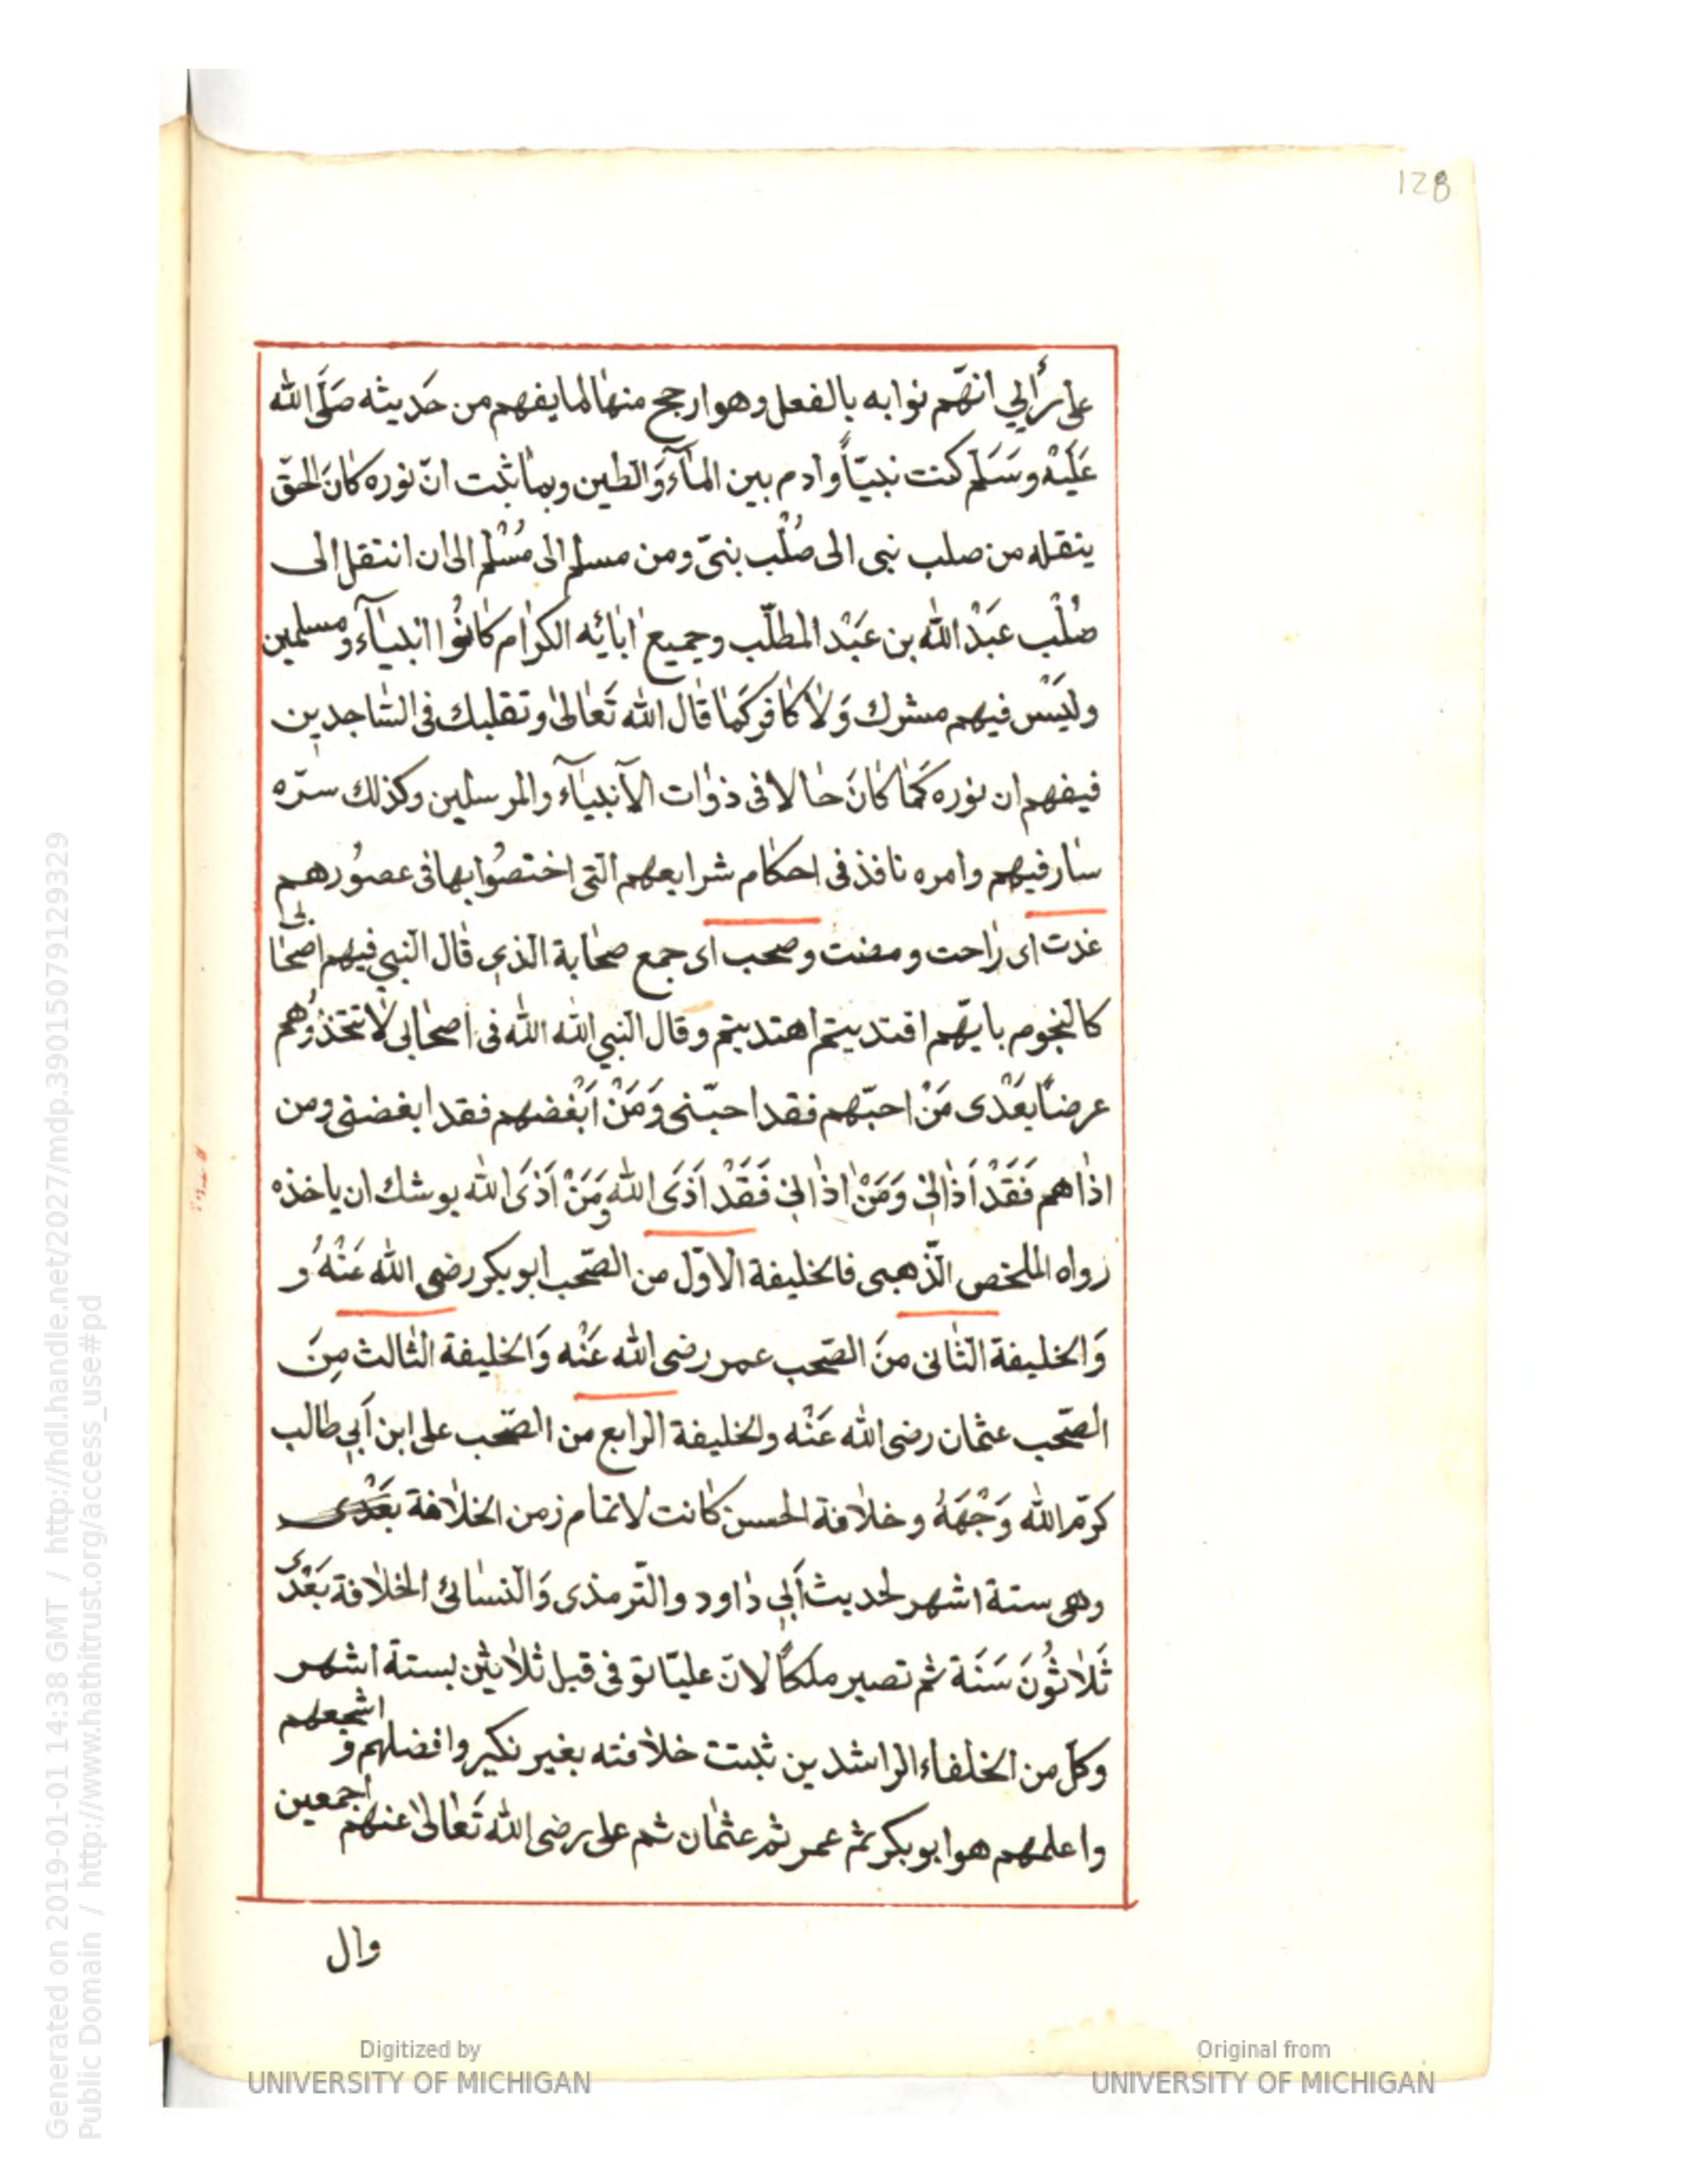 128
على رأيي انهّم نوابه بالفعل وهو ارجح منها لما يفهم من حَديثه صَلَّى الله
عَلَيْه وسَلَم كنت نبيّاً وادم بين المآء وَالطين وبما ثبت انّ نوره كانَ الحقّ
ينقله من صلب نبى الى صُلْب نبىّ ومن مسلم الى مُسْلم الى ان انتقل الى
صُلْب عَبْد الله بن عَبْد المطلّب وجميع ابائه الكرام كانُوا انبيآء ومسلمين
وليَسْ فيهم مشرك وَلا كافر كَما قال الله تَعالى وتقلبك فى السّاجدين
فيفهم ان نوره كَما كانَ حالا فى ذوات الآنبيآء والمرسلين وكذلك سرّه
سار فيهم وامره نافذ فى احكام شرايعهم التى اختصُوا بها فى عصوُرهم
غدت اى راحت ومضت وصحب اى جمع صحابة الذي قال النبي فيهم اصحابى
كالنجوم بايهّم اقتديتم اهتديتم وقال النبي الله الله فى اصحابى لا تتخذوُهم
عرضاً بعَدْى مَنْ احبّهم فقد احبّنى وَمَنْ اَبْغضهم فقد ابغضنى ومن
اذاهم فَقَدْ اَذاني وَمَنْ اذاني فَقَدْ اَذَى الله وَمَنْ اَذَى الله يوشك ان ياخذه
رواه الملخص الذّهبى فالخليفة الاوّل من الصّحب ابو بكر رضى الله عَنْهُ و
وَالخليفة الثانى منَ الصّحب عمر رضى الله عَنْه وَالخليفة الثالث مِنَ
الصّحب عثمان رضى الله عَنْه والخليفة الرابع من الصّحب على ابن اَبي طالب
كرّم الله وَجْهَهُ وخلافة الحسن كانت لاتمام زمن الخلافة بعَدْى
وهى ستة اشهر لحديث اَبي داود والتّرمذى وَالنسائى الخلافة بَعْدى
ثَلاثوُنَ سَنَة ثم تصير ملكاً لانّ عليّا توفى قبل ثلاثين بستة اشهر
وكل من الخلفاء الراشدين ثبتت خلافته بغير نكير وافضلهم و اشجعهم
واعلمهم هو ابو بكر ثم عمر ثم عثمان ثم على رضى الله تَعالى عنهم اجمعين
وال
Digitized by
UNIVERSITY OF MICHIGAN
Original from
UNIVERSITY OF MICHIGAN
Generated on 2019-01-01 14:38 GMT / http://hdl.handle.net/2027/mdp.39015079129329
Public Domain / http://www.hathitrust.org/access_use#pd